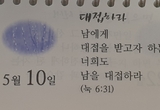 대접하라
남에게
대접을 받고자 하는
너희도
5월 10일
남을 대접하라
(눅 6:31)